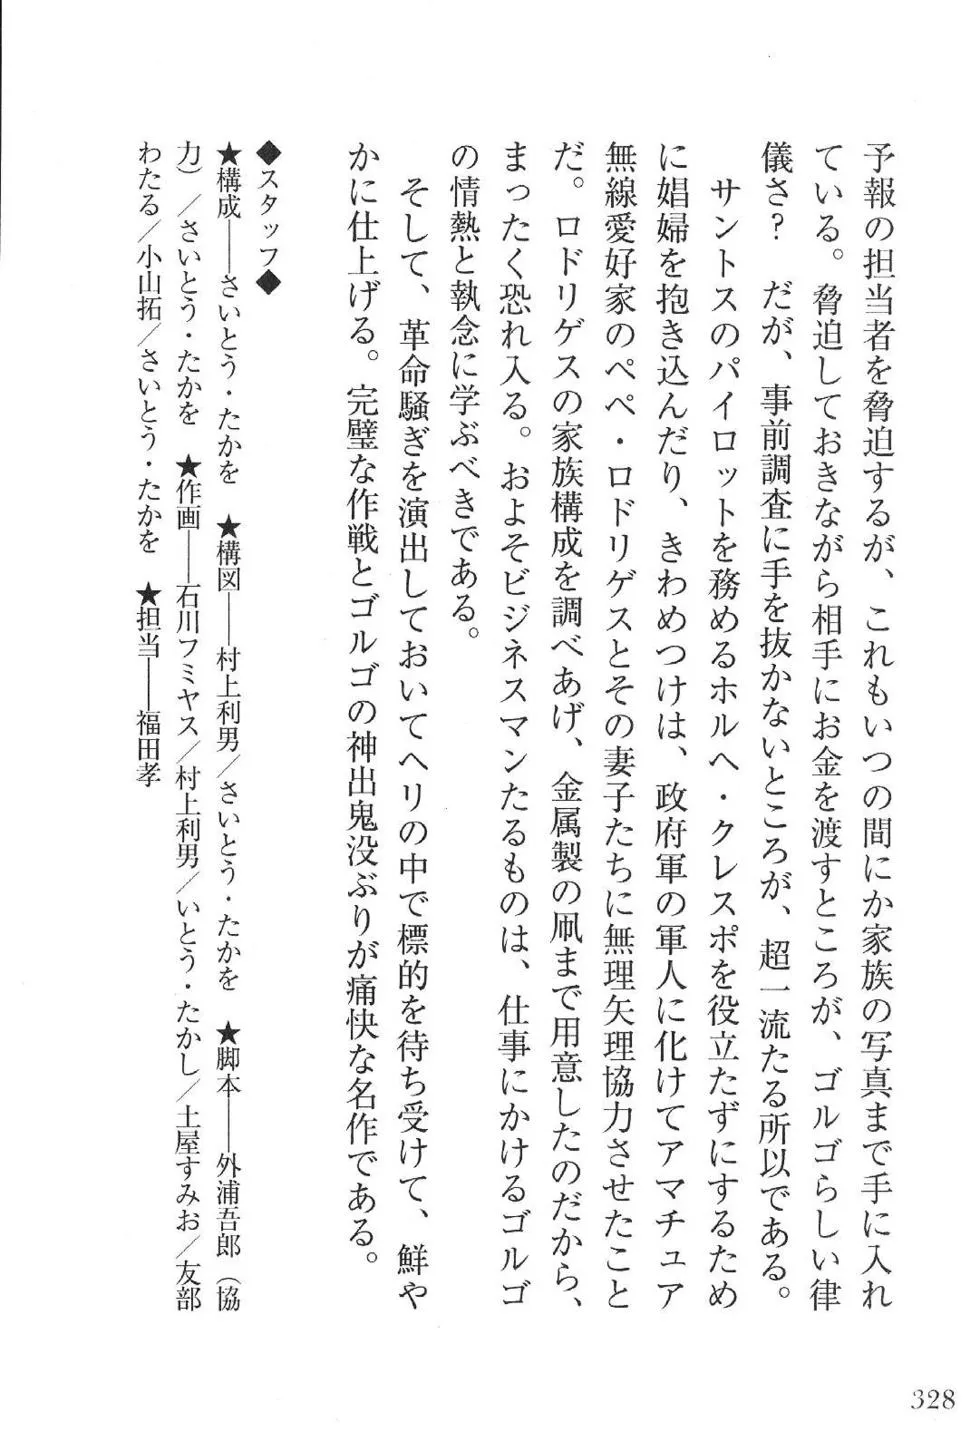 予報の担当者を脅迫するが、これもいつの間にか家族の写真まで手に入れ
ている。脅迫しておきながら相手にお金を渡すところが、ゴルゴらしい律
儀さ？　だが、事前調査に手を抜かないところが、超一流たる所以である。
　サントスのパイロットを務めるホルヘ・クレスポを役立たずにするため
に娼婦を抱き込んだり、きわめつけは、政府軍の軍人に化けてアマチュア
無線愛好家のペペ・ロドリゲスとその妻子たちに無理矢理協力させたこと
だ。ロドリゲスの家族構成を調べあげ、金属製の凧まで用意したのだから、
まったく恐れ入る。およそビジネスマンたるものは、仕事にかけるゴルゴ
の情熱と執念に学ぶべきである。
　そして、革命騒ぎを演出しておいてヘリの中で標的を待ち受けて、鮮や
かに仕上げる。完璧な作戦とゴルゴの神出鬼没ぶりが痛快な名作である。
◆スタッフ◆
★構成――さいとう・たかを　★構図――村上利男／さいとう・たかを　★脚本――外浦吾郎（協
力）／さいとう・たかを　★作画――石川フミヤス／村上利男／いとう・たかし／土屋すみお／友部
わたる／小山拓／さいとう・たかを　★担当――福田孝
328